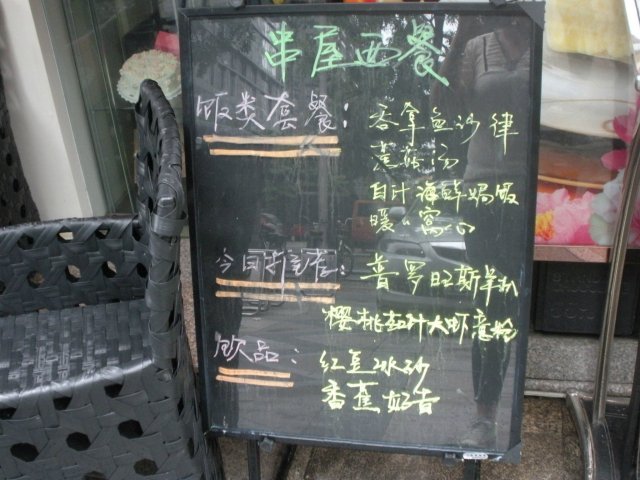 串屋西餐
饭类套餐： 吞拿鱼沙律
蘑菇汤
白汁海鲜焗饭
暖心窝心
今日推荐： 普罗旺斯羊扒
樱桃茄汁大虾意粉
饮品： 红豆冰沙
香蕉奶昔